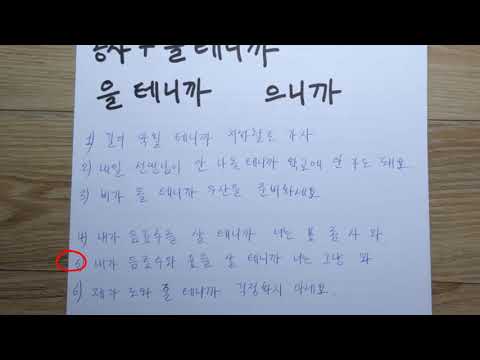 동사 + 을 테니까
을 테니까 으니까
1) 길이 막힐 테니까 지하철로 가자
2) 내일 선생님이 안 나올 테니까 학교에 안 가도 돼요
3) 비가 올 테니까 우산을 준비하세요
4) 내가 음료수를 살 테니까 너는 빵 좀 사 와
5) 내가 음료수와 빵을 살 테니까 너는 그냥 와
6) 제가 도와 줄 테니까 걱정하지 마세요.